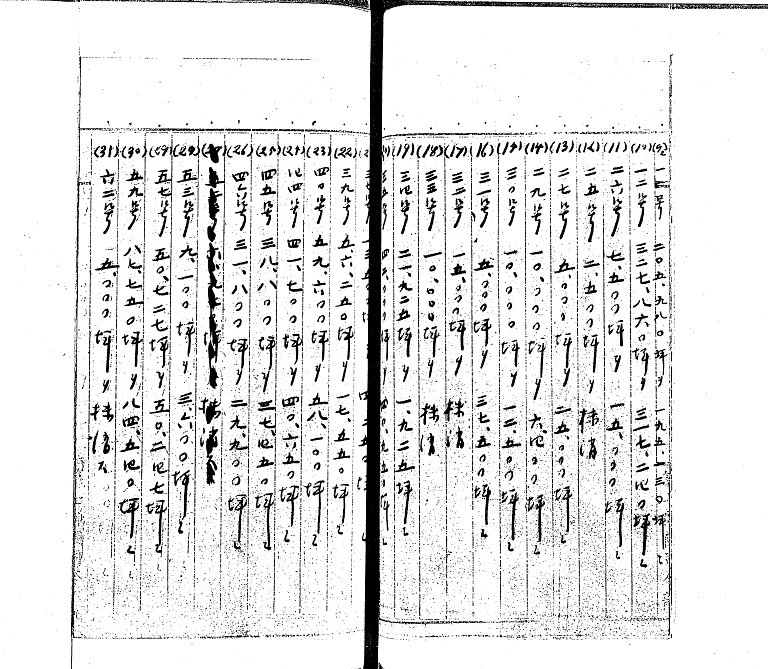 (9) 一一号 二〇五、九八〇坪ヨリ 一九五、一三〇坪ニ
(10) 一二号 三二七、八六〇坪ヨリ 三一七、二四〇坪ニ
(11) 二六号 七、五〇〇坪ヨリ 一五、〇〇〇坪ニ
(12) 二五号 二、五〇〇坪ヨリ 抹消
(13) 二七号 五、〇〇〇坪ヨリ 二五、〇〇〇坪ニ
(14) 二九号 一〇、〇〇〇坪ヨリ 六、四〇〇坪ニ
(15) 三〇号 一〇、〇〇〇坪ヨリ 一二、五〇〇坪ニ
(16) 三一号 五、〇〇〇坪ヨリ 三七、五〇〇坪
(17) 三二号 一五、〇〇〇坪ヨリ 抹消
(18) 三三号 一〇、〇〇〇坪ヨリ 抹消
(19) 三四号 二一、九二五坪ヨリ 一、九二五坪
(22) 三九号 五、六、二五〇坪ヨリ 一七、五五〇坪ニ
(23) 四〇号 五九、六〇〇坪ヨリ 五八、一〇〇坪ニ
(24) 四四号 四一、七〇〇坪ヨリ 四〇、六五〇坪ニ
(25) 四五号 三八、八〇〇坪ヨリ 三七、四五〇坪ニ
(26) 四六号 三一、八〇〇坪ヨリ 二九、九〇〇坪ニ
(28) 五三号 九、一〇〇坪ヨリ 三、六〇〇坪ニ
(29) 五七号 五〇、七二七坪ヨリ 五〇、二四七坪ニ
(30) 五九号 八七、七五〇坪ヨリ 八四、五四〇坪ニ
(31) 六二号 一五、〇〇〇坪ヨリ 抹消ス